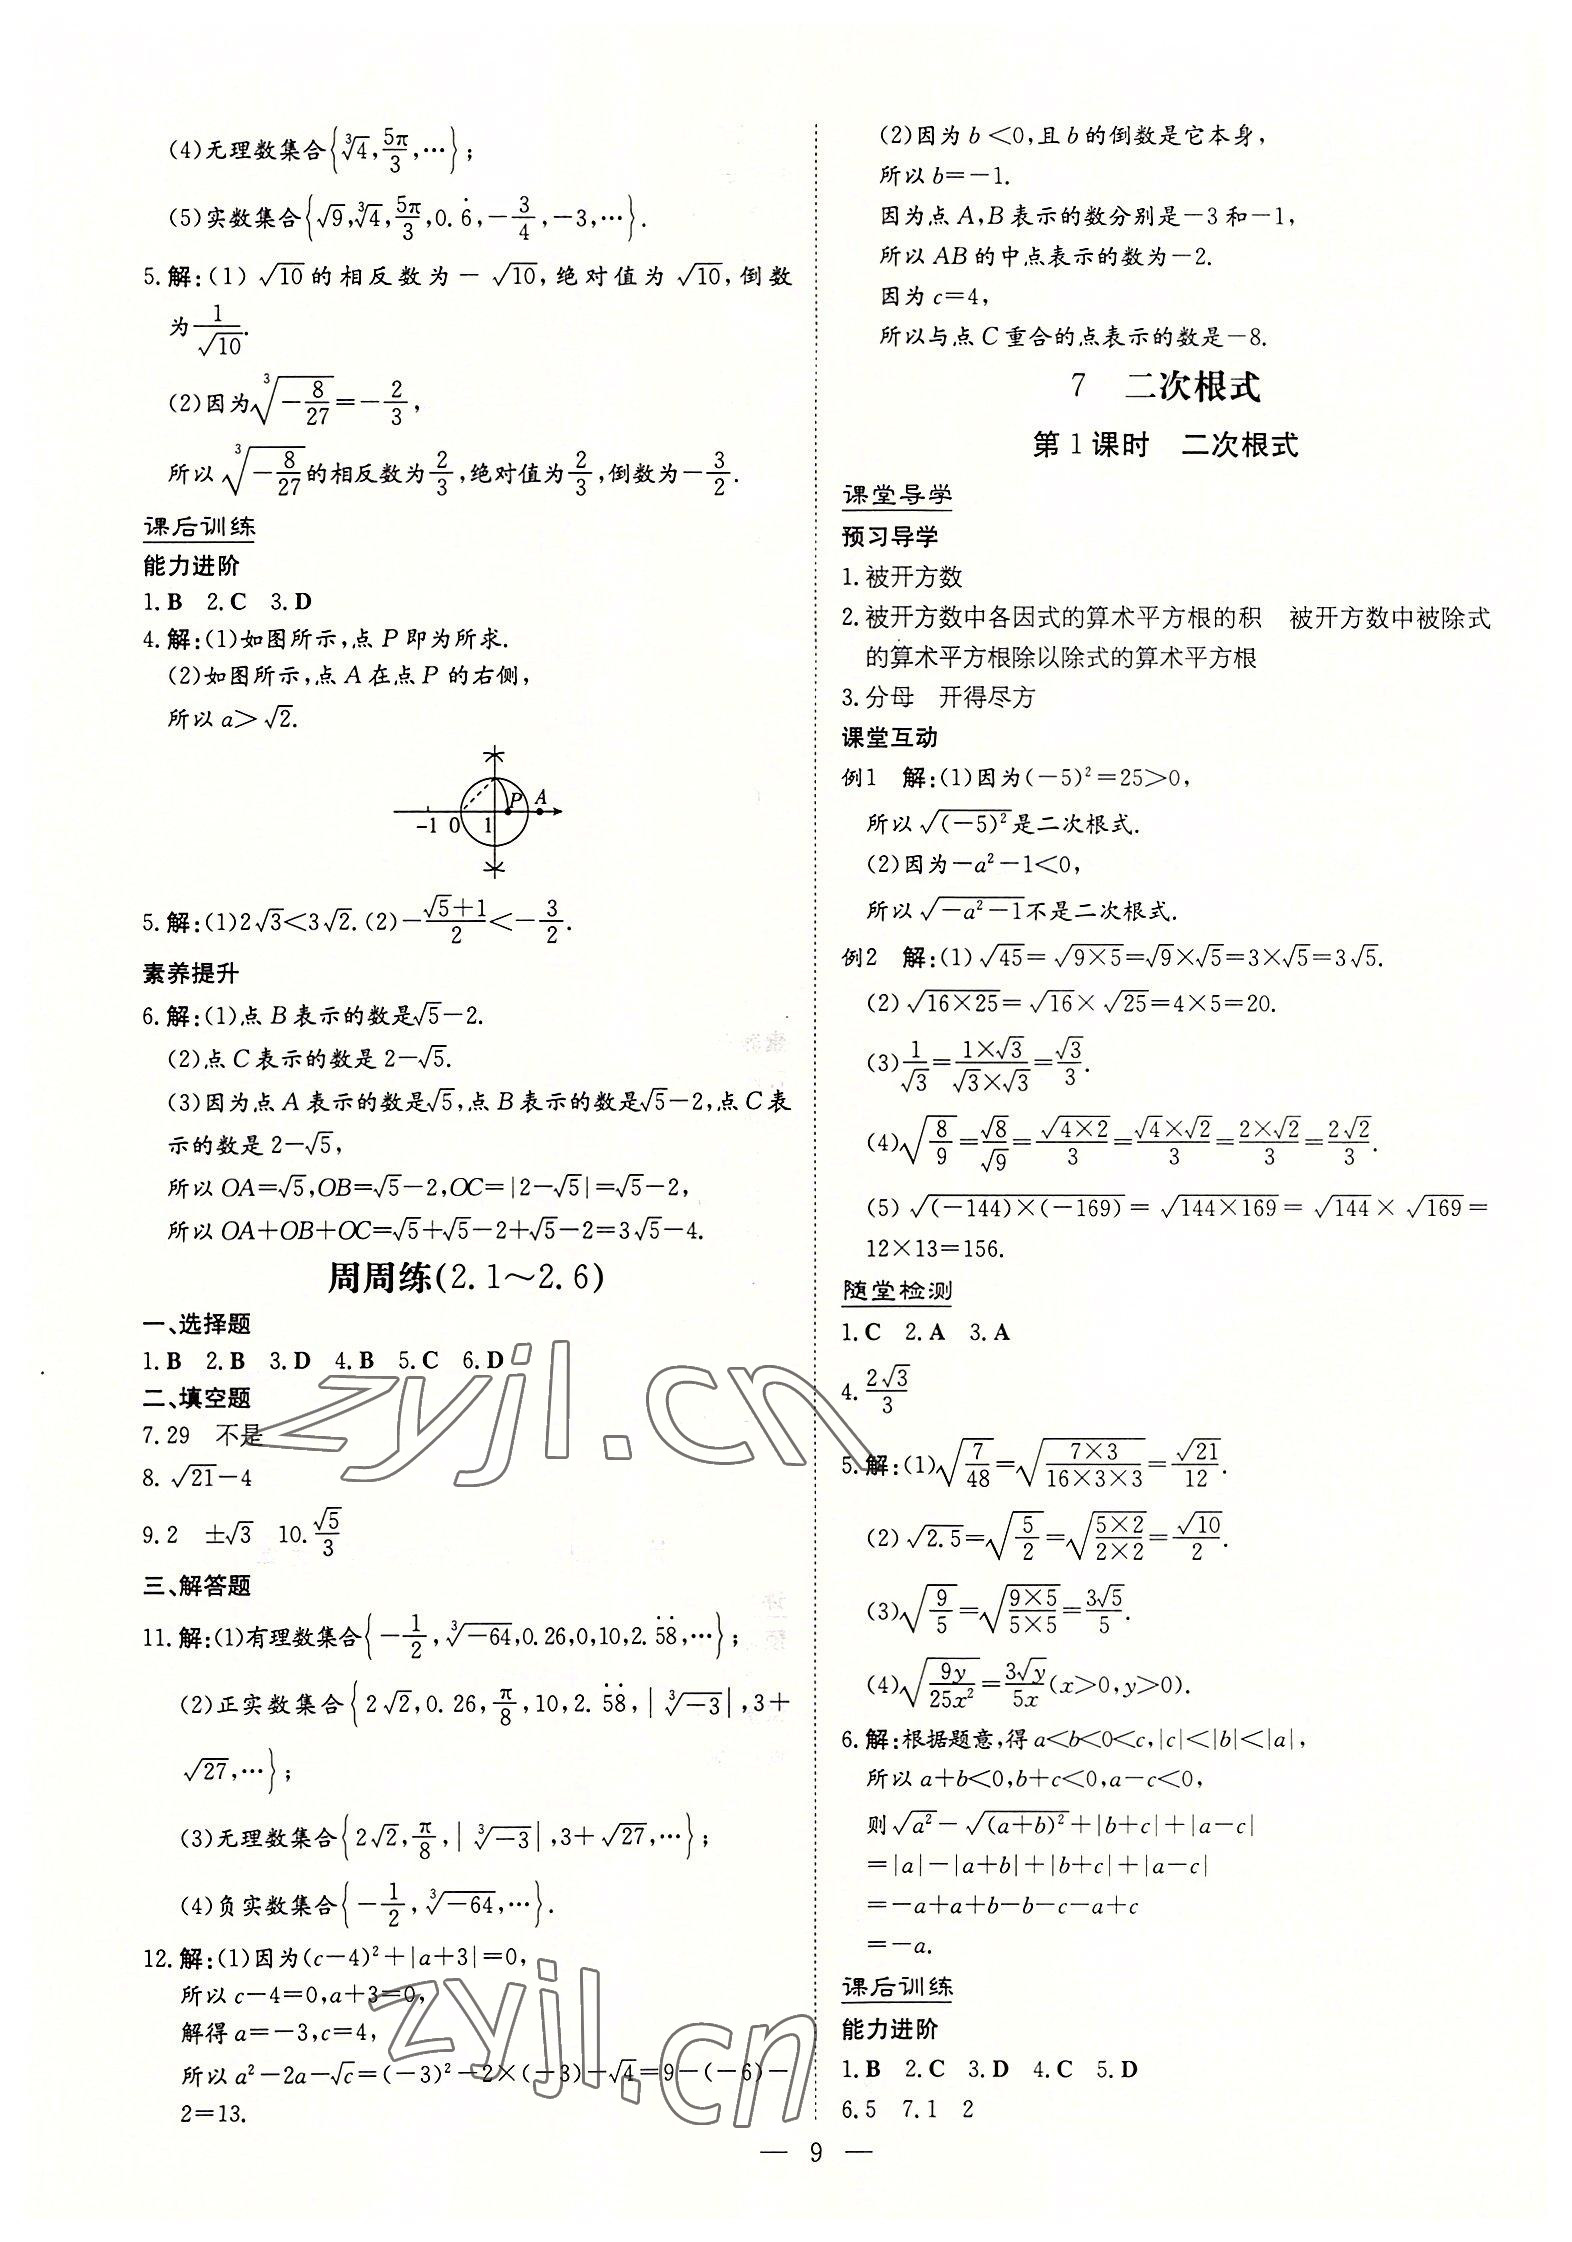 (4)无理数集合{∛4,5π/3,…};
(5)实数集合{√9,∛4,5π/3,0.6̇,-3/4,-3,…}.
5.解:(1)√10的相反数为-√10,绝对值为√10,倒数
为1/√10.
(2)因为∛(-8/27)=-2/3,
所以∛(-8/27)的相反数为2/3,绝对值为2/3,倒数为-3/2.
课后训练
能力进阶
1.B 2.C 3.D
4.解:(1)如图所示,点P即为所求.
(2)如图所示,点A在点P的右侧,
所以a>√2.
P A
-1 0 1
5.解:(1)2√3<3√2.(2)-(√5+1)/2<-3/2.
素养提升
6.解:(1)点B表示的数是√5-2.
(2)点C表示的数是2-√5.
(3)因为点A表示的数是√5,点B表示的数是√5-2,点C表
示的数是2-√5,
所以OA=√5,OB=√5-2,OC=|2-√5|=√5-2,
所以OA+OB+OC=√5+√5-2+√5-2=3√5-4.
周周练(2.1～2.6)
一、选择题
1.B 2.B 3.D 4.B 5.C 6.D
二、填空题
7.29 不是
8.√21-4
9.2 ±√3 10.√5/3
三、解答题
11.解:(1)有理数集合{-1/2,∛-64,0.26,0,10,2.5̇8̇,…};
(2)正实数集合{2√2,0.26,π/8,10,2.5̇8̇,|∛-3|,3+
√27,…};
(3)无理数集合{2√2,π/8,|∛-3|,3+√27,…};
(4)负实数集合{-1/2,∛-64,…}.
12.解:(1)因为(c-4)²+|a+3|=0,
所以c-4=0,a+3=0,
解得a=-3,c=4,
所以a²-2a-√c=(-3)²-2×(-3)-√4=9-(-6)-
2=13.
(2)因为b<0,且b的倒数是它本身,
所以b=-1.
因为点A,B表示的数分别是-3和-1,
所以AB的中点表示的数为-2.
因为c=4,
所以与点C重合的点表示的数是-8.
7 二次根式
第1课时 二次根式
课堂导学
预习导学
1.被开方数
2.被开方数中各因式的算术平方根的积 被开方数中被除式
的算术平方根除以除式的算术平方根
3.分母 开得尽方
课堂互动
例1 解:(1)因为(-5)²=25>0,
所以√(-5)²是二次根式.
(2)因为-a²-1<0,
所以√(-a²-1)不是二次根式.
例2 解:(1)√45=√(9×5)=√9×√5=3×√5=3√5.
(2)√(16×25)=√16×√25=4×5=20.
(3)1/√3=(1×√3)/(√3×√3)=√3/3.
(4)√(8/9)=√8/√9=√(4×2)/3=(√4×√2)/3=(2×√2)/3=2√2/3.
(5)√((-144)×(-169))=√(144×169)=√144×√169=
12×13=156.
随堂检测
1.C 2.A 3.A
4.2√3/3
5.解:(1)√(7/48)=√((7×3)/(16×3×3))=√21/12.
(2)√2.5=√(5/2)=√((5×2)/(2×2))=√10/2.
(3)√(9/5)=√((9×5)/(5×5))=3√5/5.
(4)√(9y/25x²)=3√y/5x(x>0,y>0).
6.解:根据题意,得a<b<0<c,|c|<|b|<|a|,
所以a+b<0,b+c<0,a-c<0,
则√a²-√(a+b)²+|b+c|+|a-c|
=|a|-|a+b|+|b+c|+|a-c|
=-a+a+b-b-c-a+c
=-a.
课后训练
能力进阶
1.B 2.C 3.D 4.C 5.D
6.5 7.1 2
— 9 —
zyjl.cn
zyjl.cn